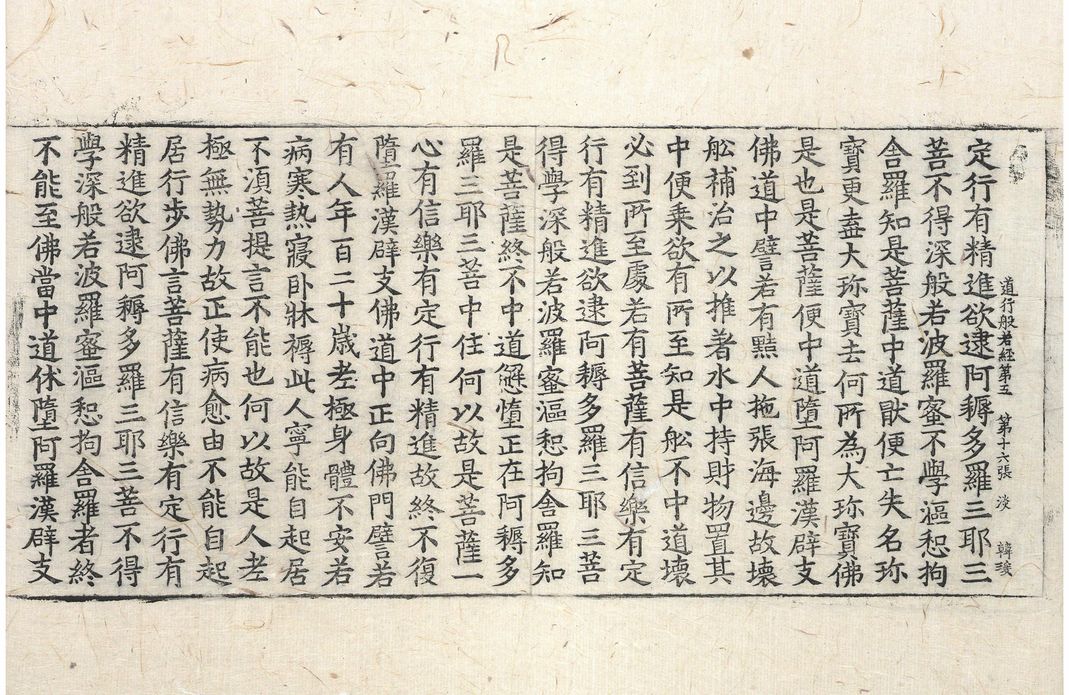 道行般若経第五　第十六張　淡　韓
定行有精進欲逮阿耨多羅三耶三
菩不得深般若波羅蜜不學漚惒拘
舎羅知是菩薩中道猒便亡失名珎
寳更盍大珎寳去何所為大珎寳佛
是也是菩薩便中道墮阿羅漢辟支
佛道中譬若有黠人拖張海邊故壞
舩補治之以推著水中持財物置其
中便乗欲有所至知是舩不中道壞
必到所至處若有菩薩有信樂有定
行有精進欲逮阿耨多羅三耶三菩
得學深般若波羅蜜漚惒拘舎羅知
是菩薩終不中道懈惰正在阿耨多
羅三耶三菩中住何以故是菩薩一
心有信樂有定行有精進故終不復
墮羅漢辟支佛道中正向佛門譬若
有人年百二十歳老極身體不安若
病寒熱寝卧牀褥此人寧能自起居
不湏菩提言不能也何以故是人老
極無勢力故正使病愈由不能自起
居行步佛言菩薩有信樂有定行有
精進欲逮阿耨多羅三耶三菩不得
學深般若波羅蜜漚惒拘舎羅者終
不能至佛當中道休墮阿羅漢辟支